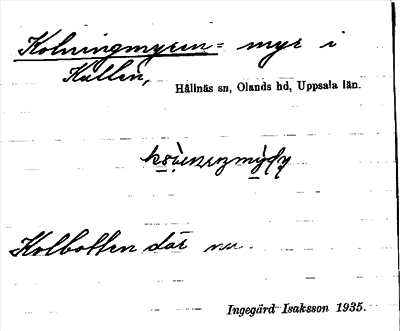 Kolningmyren = myr i
Kallen,
Hållnäs sn, Olands hd, Uppsala län.
Kolbotten där nu.
Ingegärd Isaksson 1935.